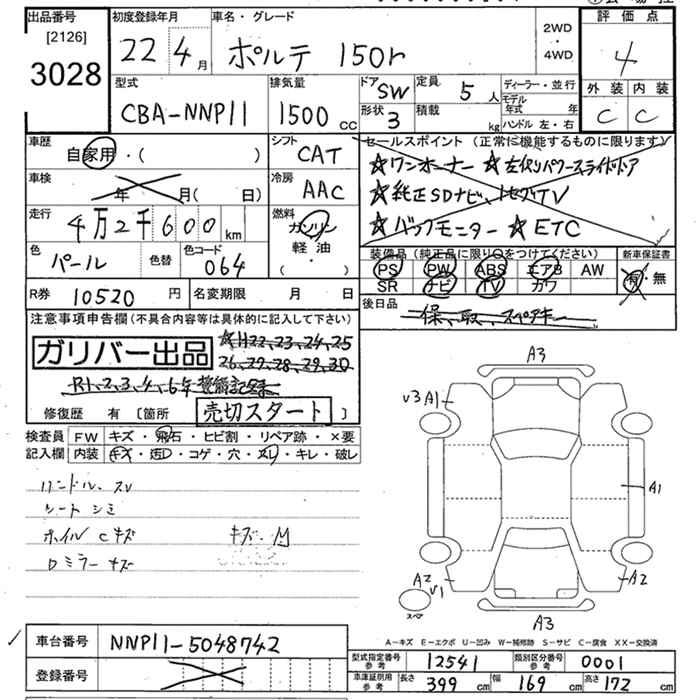 出品番号 初度登録年月 車名・グレード 評価点
[2126]
3028
22 4月 ポルテ 150r 2WD・4WD 4
外装 内装
C C
型式 排気量 ドア 定員 ディーラー・並行
CBA-NNP11 1500cc SW 5人
形状 積載 モデル年式 年
3 kg ハンドル 左・右
車歴 シフト セールスポイント (正常に機能するものに限ります)
自家用・( ) CAT ☆ワンオーナー ☆左側パワースライドドア
車検 冷房 ☆純正SDナビ、1セグTV
年 月( 日) AAC ☆バックモニター ☆ETC
走行 燃料
4万2千600km ガソリン
軽油
( ・ )
色 色替 色コード 装備品 (純正品に限り○をつけてください) 新車保証書
パール 064 PS PW ABS エアB AW 有・無
SR ナビ TV カワ
R券 10520円 名変期限 月 日 後日品
注意事項申告欄(不具合内容等は具体的に記入して下さい) 保、取、スペアキー
ガリバー出品 ☆H22,23,24,25
26,27,28,29,30
R1,2,3,4,6年整備記録
修復歴 有 [箇所 売切スタート ]
検査員 FW キズ・飛石・ヒビ割・リペア跡・×要
記入欄 内装 キズ・汚レ・コゲ・穴・スレ・キレ・破レ
ハンドル スレ
シート シミ
ホイル C キズ キズ・凹
ドミラー キズ
A3
V3 A1
A1
A2
V1
A2
スペア
A3
A−キズ E−エクボ U−凹み W−補修跡 S−サビ C−腐食 XX−交換済
車台番号 NNP11-5048742
登録番号
型式指定番号 参考 12541 類別区分番号 参考 0001
車庫証明用 参考 長さ 399cm 幅 169cm 高さ 172cm